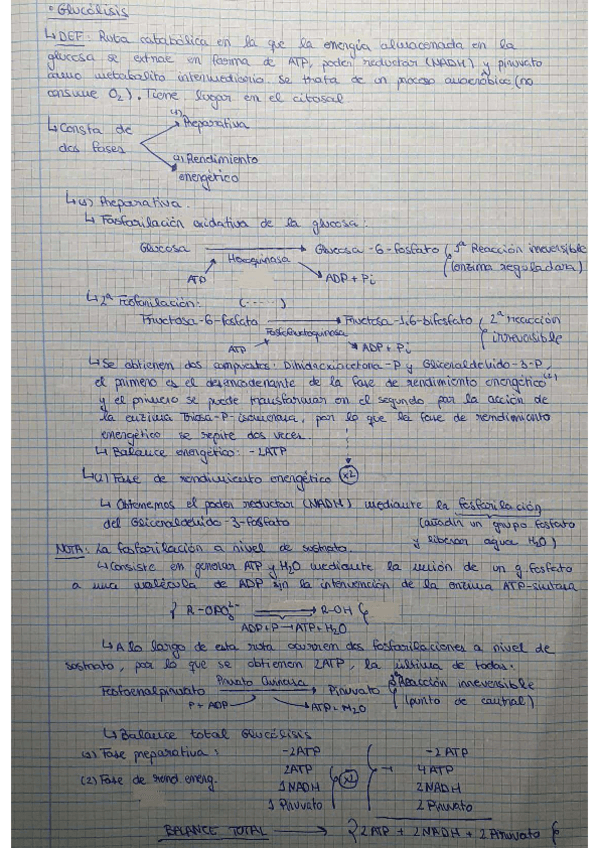 • Glucólisis
↳ DEF: Ruta catabólica en la que la energía almacenada en la
glucosa se extrae en forma de ATP, poder reductor (NADH) y piruvato
como metabolito intermediario. Se trata de un proceso anaeróbico (no
consume O2). Tiene lugar en el citosol
↳ Consta de dos fases
(1) Preparativa
(2) Rendimiento energético
↳ (1) Preparativa.
↳ Fosforilación oxidativa de la glucosa:
Glucosa → Glucosa-6-fosfato { 1ª Reacción irreversible
Hexoquinasa (enzima reguladora)
ATP ADP + Pi
↳ 2ª Fosforilación: (.....)
Fructosa-6-fosfato → Fructosa-1,6-bifosfato { 2ª reacción
Fosfofructoquinasa irreversible
ATP ADP + Pi
↳ Se obtienen dos compuestos: Dihidroxiacetona-P y Gliceraldehido-3-P,
el primero es el desencadenante de la fase de rendimiento energético
y el primero se puede transformar en el segundo por la acción de
la enzima Triosa-P-isomerasa, por lo que la fase de rendimiento
energético se repite dos veces.
↳ Balance energético: -2ATP
↳ (2) Fase de rendimiento energético (x2)
↳ Obtenemos el poder reductor (NADH) mediante la fosforilación
del Gliceraldehido-3-fosfato (añadir un grupo fosfato
y liberar agua H2O)
NOTA: La fosforilación a nivel de sustrato.
↳ Consiste en generar ATP y H2O mediante la unión de un g. fosfato
a una molécula de ADP sin la intervención de la enzima ATP-sintasa
{ R-OPO3²⁻ → R-OH }
ADP+P → ATP+H2O
↳ A lo largo de esta ruta ocurren dos fosforilaciones a nivel de
sustrato, por lo que se obtienen 2ATP, la última de todas:
Fosfoenolpiruvato → Piruvato { 3ª Reacción irreversible
Piruvato Quinasa (punto de control)
P + ADP ATP + H2O
↳ Balance total Glucólisis
(1) Fase preparativa: -2ATP -2 ATP
(2) Fase de rend energ. 2ATP 4 ATP
1 NADH (x2) → 2 NADH
1 Piruvato 2 Piruvato
BALANCE TOTAL → { 2 ATP + 2 NADH + 2 Piruvato }